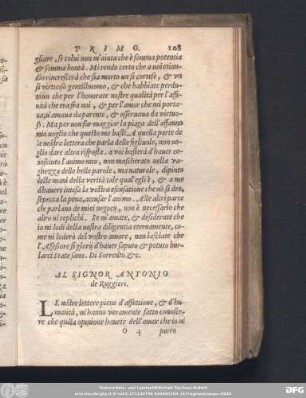 PRIMO. 108
gliare, se colui non m'aiuta che è somma potenza
& somma bontà. Mi rendo certo che a voi etian-
dio rincrescerà che sia morto un sì cortese, & un
sì virtuoso gentilhuomo, & che habbiate perdu-
to uno che per l'honorate vostre qualità per l'affi-
nità che era fra voi, & per l'amor che mi porta-
va, v'amava da parente, & osservava da virtuo-
si. Ma per non far maggior la piaga dell'affanno
mio voglio che questo mi basti. A quella parte de
la vostra lettera che parla delle figliuole, non vo-
glio dare altra risposta. a voi basterà d'haver co-
nosciuto l'animo mio, non mascherato nella va-
ghezza delle belle parole, ma naturale, dipinto
dalle mani della verità tale qual'egli è, & a me
d'havere intesa la vostra escusatione che no si dee,
se pecca la penna, accusar l'animo. Alle altre parti
che parlano de miei negocij, non è necessario che
altro vi replichi. Se m'amate, & desiderate che
io mi lodi della vostra diligentia eternamente, co-
me mi loderò del vostro amore, non lasciate che
l'Assessore si glorij d'haver saputo & potuto bur-
larci. State sano. Di Sorrento. &c.
AL SIGNOR ANTONIO
de Ruggieri.
LE vostre lettere piene d'affettione, & d'hu-
manità, m'hanno veramente fatto conosce-
re che quella opinione havete dell'amor che io vi
O 4 porto